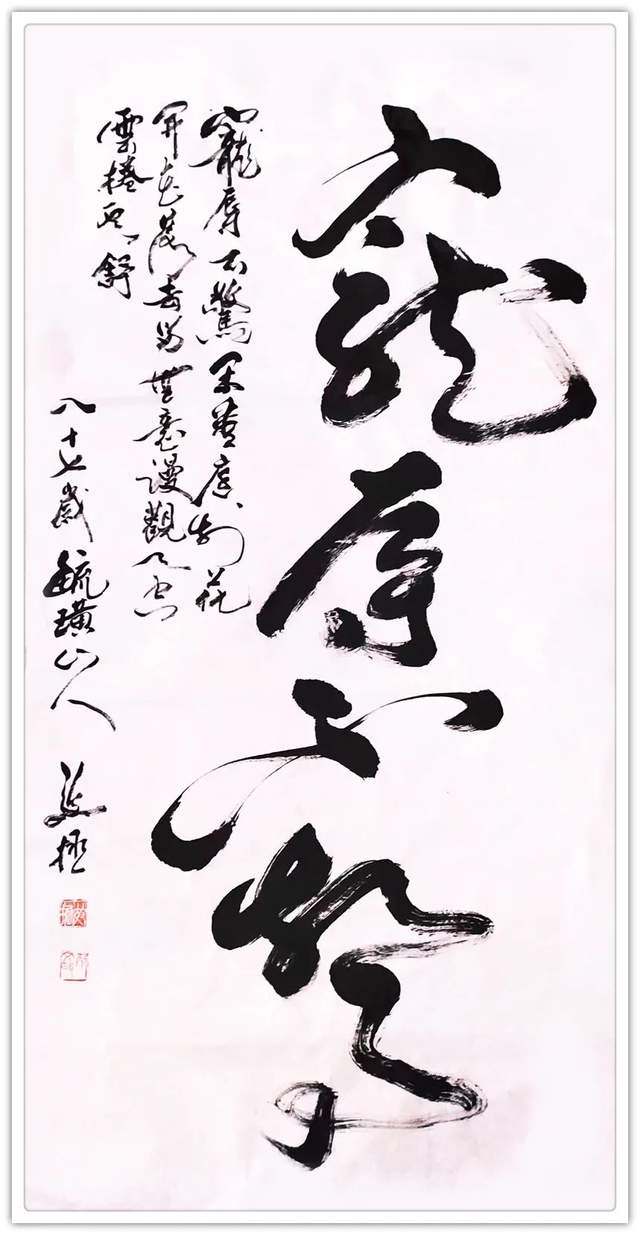 寵辱不驚
寵辱不驚閑看庭前花
開花落去留無意漫觀天
雲捲雲舒
八十七歲毓璜山人